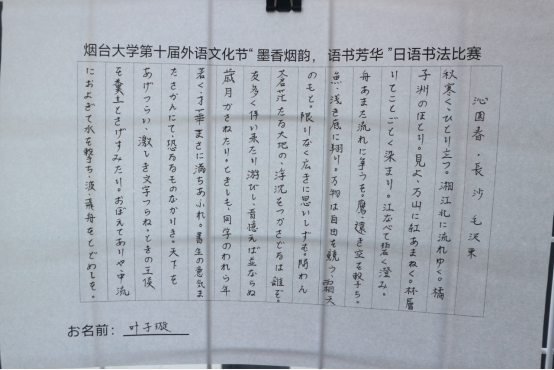 烟台大学第十届外语文化节“墨香烟韵，语书芳华”日语书法比赛
沁園春・長沙 毛沢東
秋寒く、ひとり立つ。湘江北に流れゆく。橘
子洲のほとり。見よ、万山に紅あまねく。林層
りてことごとく染まり。江なべて碧く澄み。
舟あまた流れに争うも。鷹、穣き空を撃ち。
魚、浅き底に翔り。万物は自由を競う、霜天
のもと。限りなく広きに思いしずむ。問わん
蒼茫たる大地の、浮沈をつかさどるは誰ぞ。
友多く伴い来たり游びし、首徳えば並ならぬ
歳月かさねたり。ときしも、同学のわれら年
若く、才華まさに満ちあふれ。書生の意気ま
たさかんにて、恐るるものなかりき。天下を
あげつらい、激しき文字つらね。ときの王侯
を糞土とさげすみたり。おぼえてありや、中流
におよぎて水を撃ち、波、飛舟をとどめしを。
お名前：叶子璇